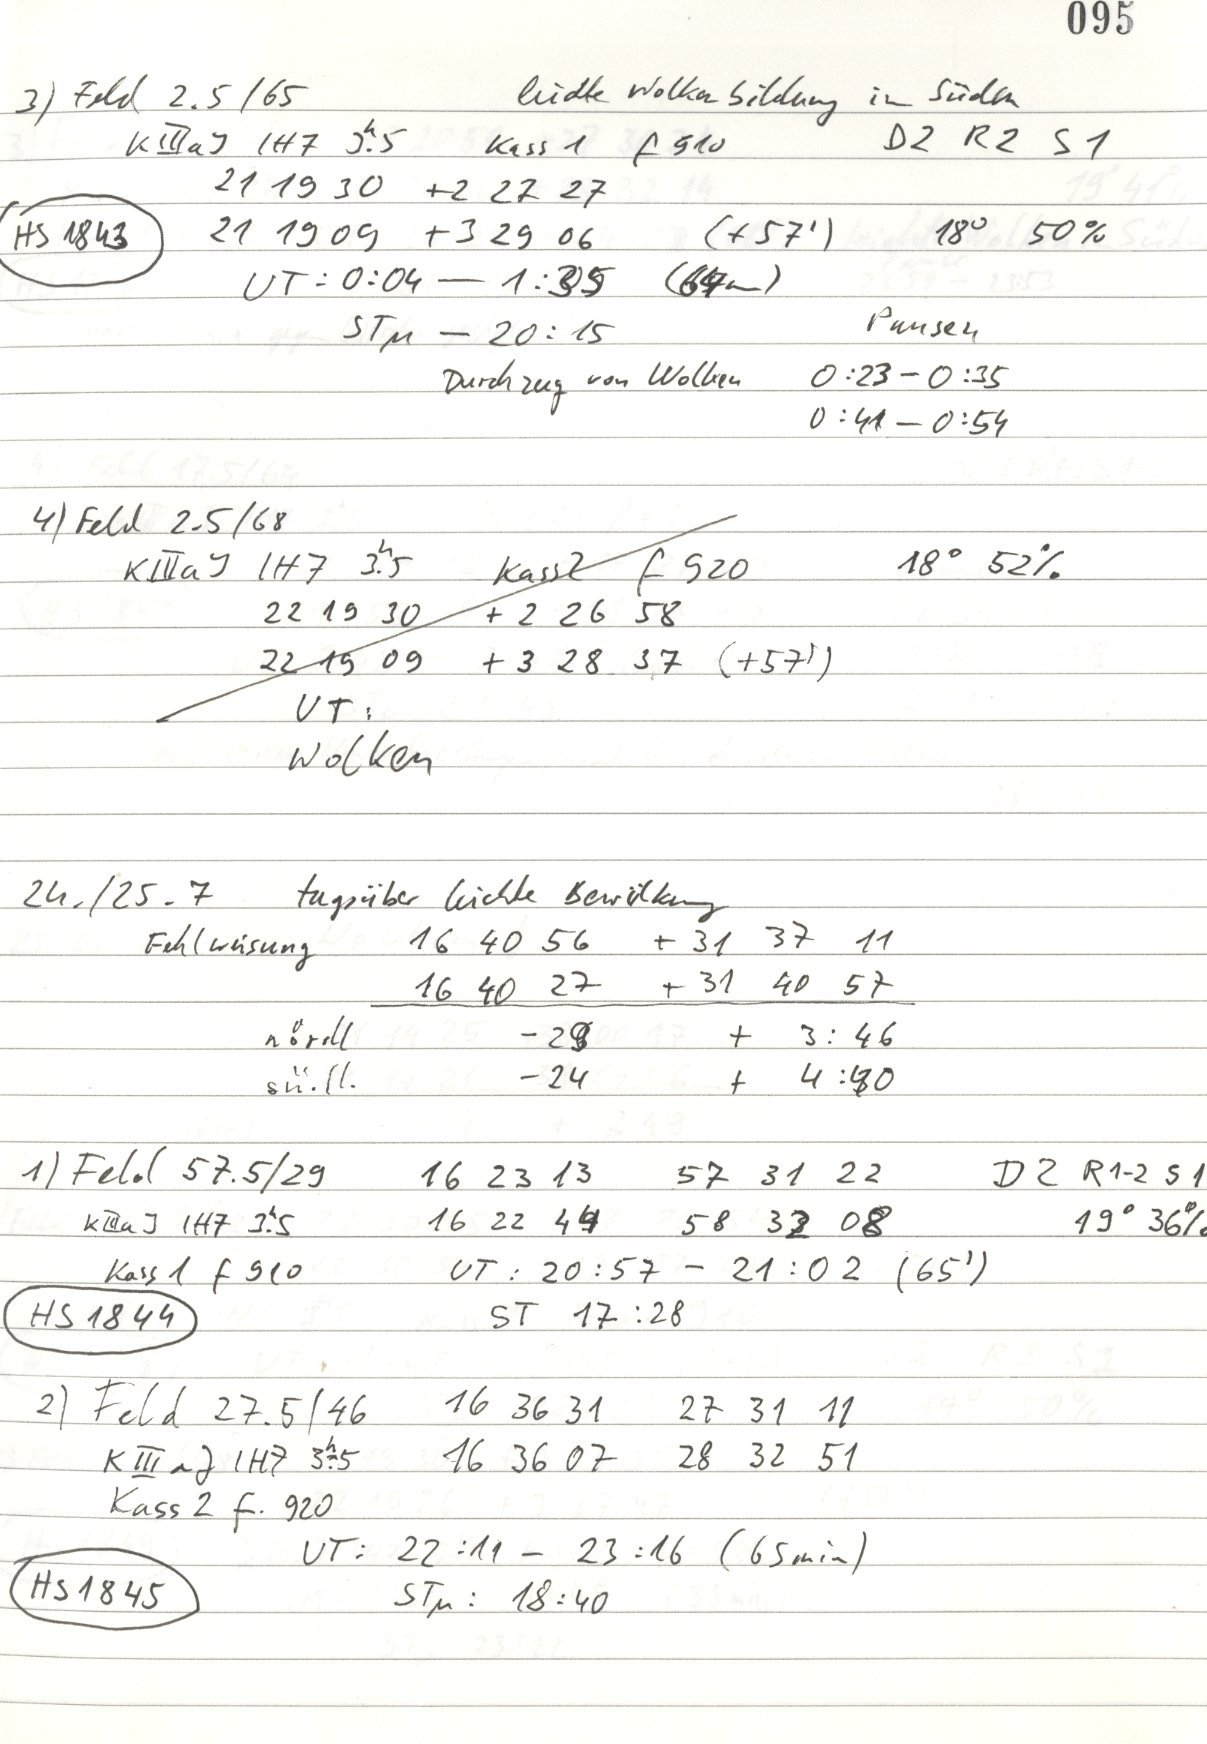 095
3) Feld 2.5/65 leichte Wolkenbildung im Süden
KIIIaJ IH7 3h.5 Kass 1 f 910 D2 R2 S1
21 19 30 +2 27 27
HS 1843 21 19 09 +3 29 06 (+57') 18° 50%
UT: 0:04 — 1:35 (64m)
STμ — 20:15 Pausen
Durchzug von Wolken 0:23 — 0:35
0:41 — 0:54
4) Feld 2.5/68
KIIIaJ IH7 3h.5 Kass 2 f 920 18° 52%
22 19 30 + 2 26 58
22 19 09 + 3 28 37 (+57')
UT:
Wolken
24./25.7 tagsüber leichte Bewölkung
Fehlweisung 16 40 56 + 31 37 11
16 40 27 + 31 40 57
nördl -29 + 3:46
südl. -24 + 4:40
1) Feld 57.5/29 16 23 13 57 31 22 D2 R1-2 S1
KIIIaJ IH7 3h.5 16 22 44 58 32 08 19° 36%
Kass 1 f 910 UT: 20:57 — 21:02 (65')
HS 1844 ST 17:28
2) Feld 27.5/46 16 36 31 27 31 11
KIIIaJ IH7 3h.5 16 36 07 28 32 51
Kass 2 f. 920
UT: 22:11 — 23:16 (65min)
HS 1845 STμ: 18:40